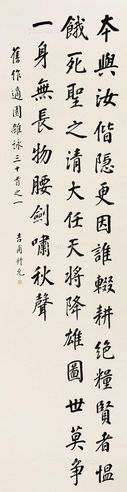 本與汝偕隱更因誰輟耕絕糧賢者愠
餓死聖之清大任天將降雄圖世莫爭
一身無長物腰劍嘯秋聲
舊作適園雜詠三十首之一